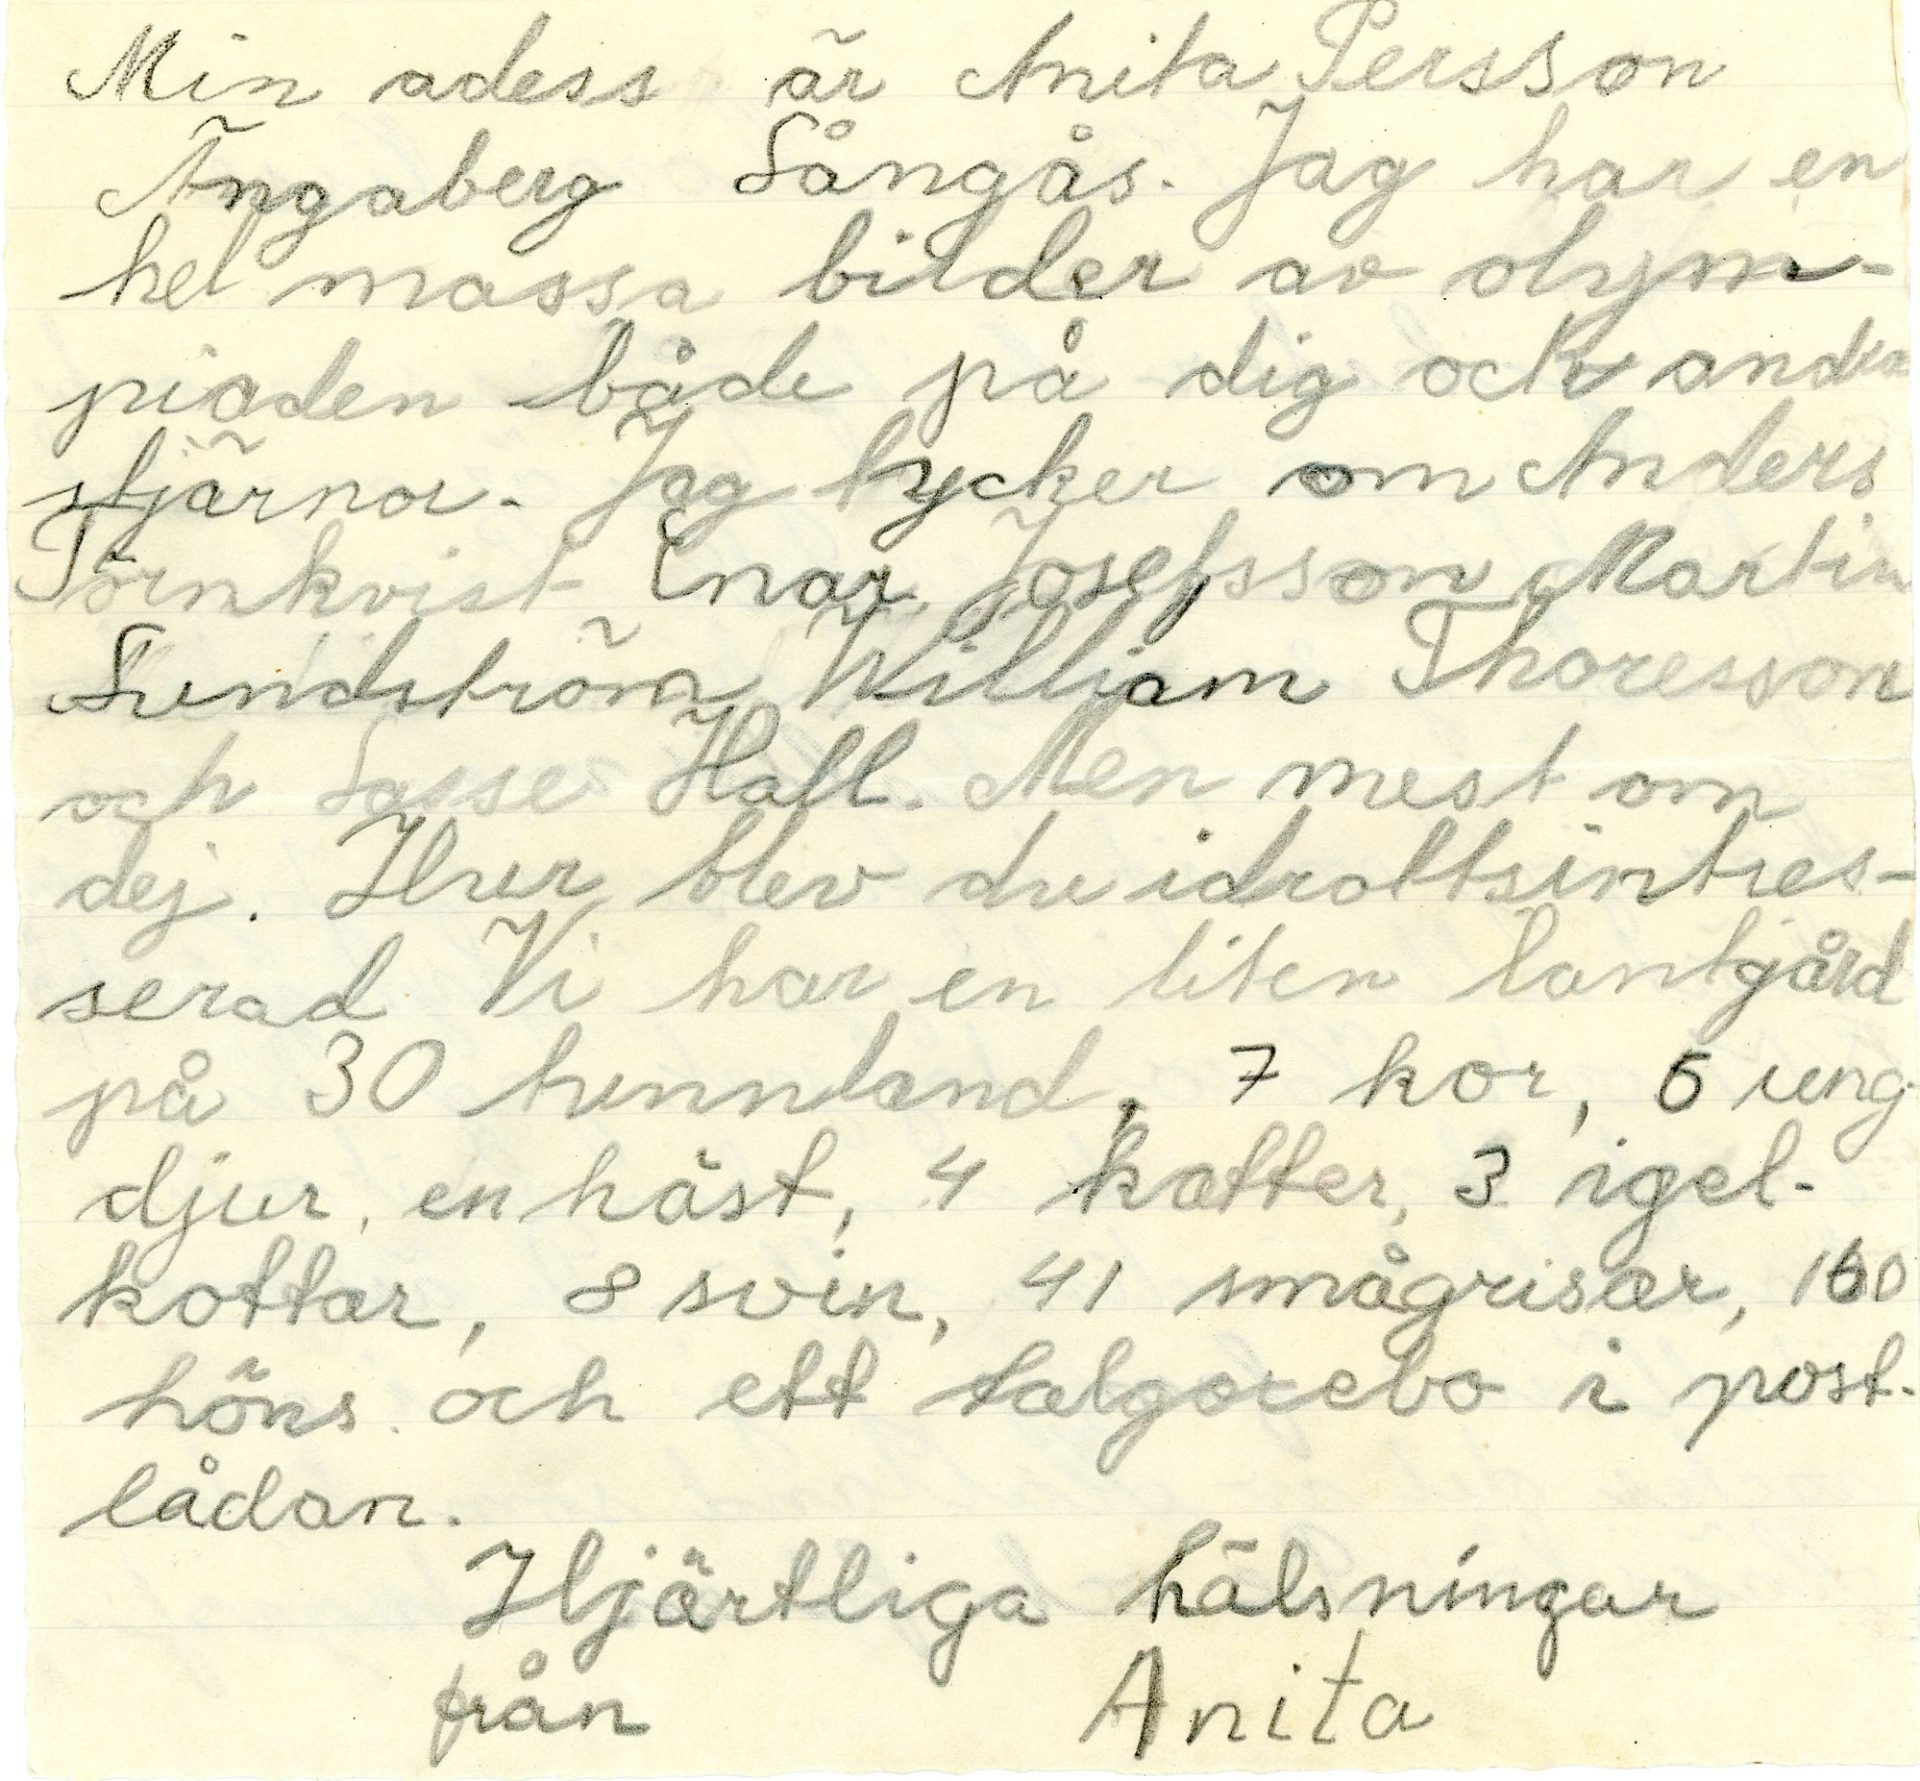 Min adess är Anita Persson
Ängaberg Långås. Jag har en
hel massa bilder av olym-
piaden både på dig och andra
stjärnor. Jag tycker om Anders
Törnkvist Enar Josefsson Martin
Lundström William Thoresson
och Lasse Hall. Men mest om
dej. Hur blev du idrottsintres-
serad Vi har en liten lantgård
på 30 tunnland, 7 kor, 5 ung
djur, en häst, 4 katter, 3 igel-
kottar, 8 svin, 41 smågrisar, 160
höns. och ett talgoxebo i post-
lådan.
Hjärtliga hälsningar
från Anita